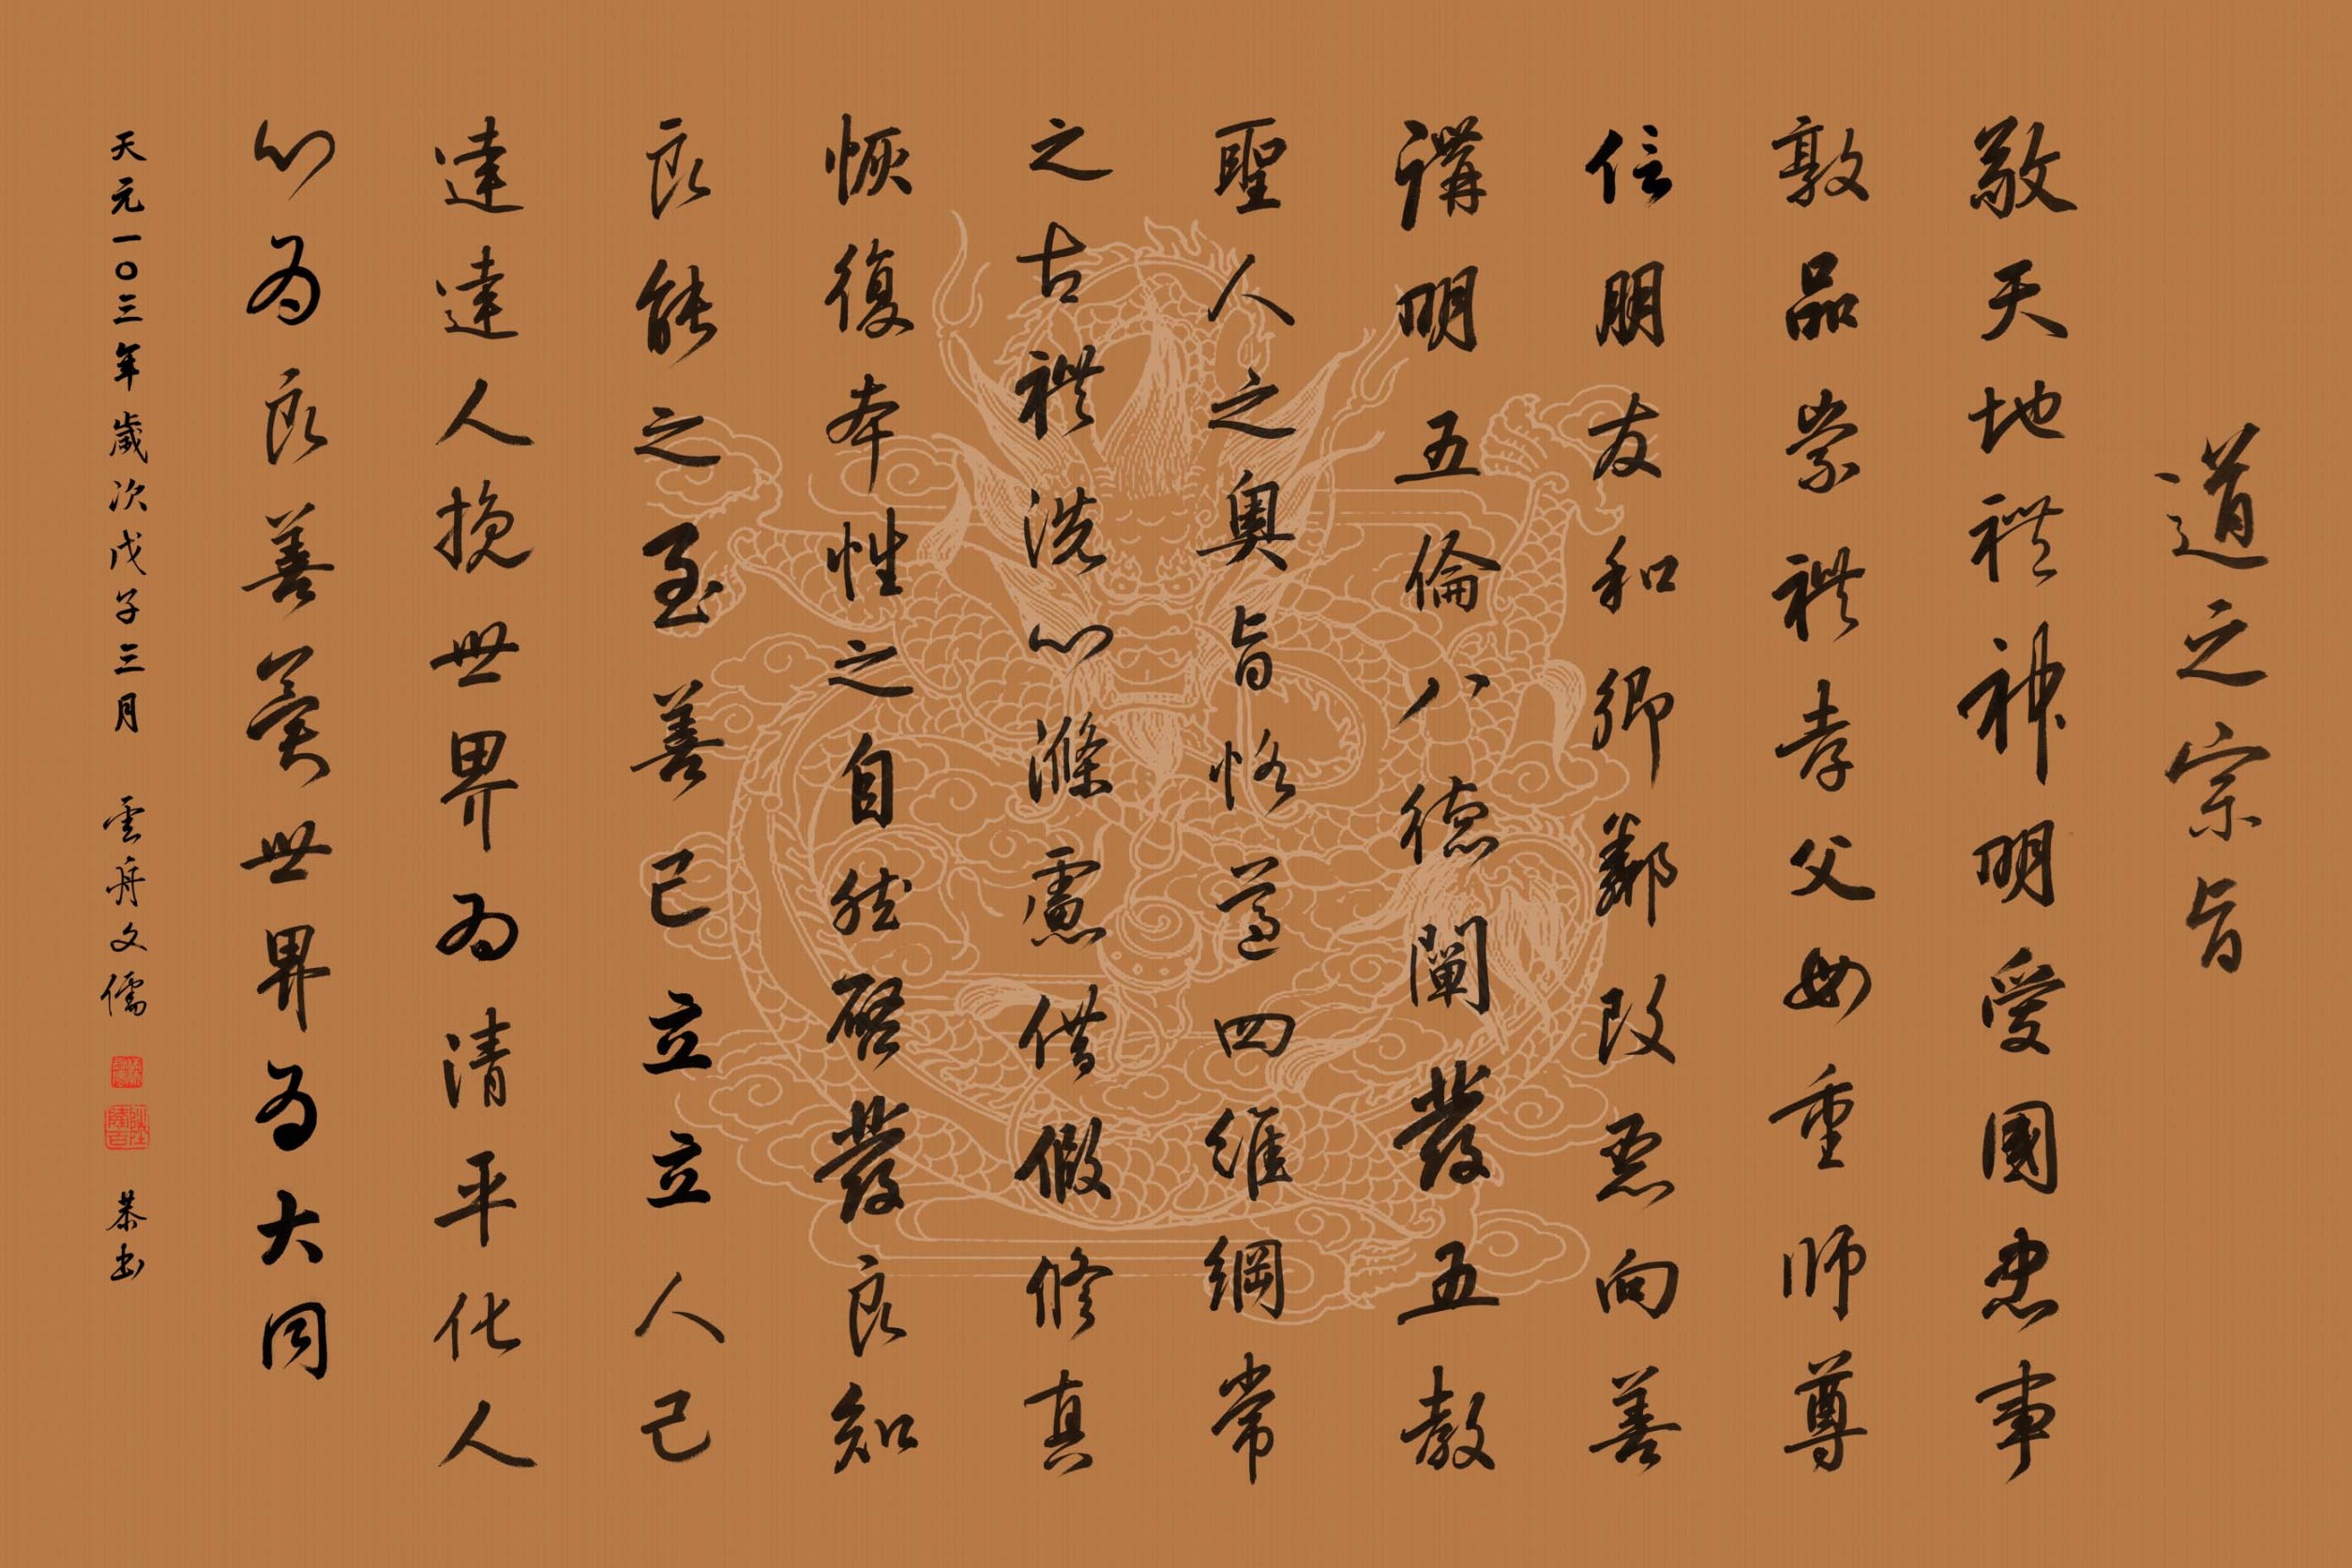 道之宗旨
敬天地禮神明愛國忠事
敦品崇禮孝父母重師尊
信朋友和鄉鄰改惡向善
講明五倫八德闡發五教
聖人之奧旨恪遵四維綱常
之古禮洗心滌慮借假修真
恢復本性之自然啟發良知
良能之至善己立立人己
達達人挽世界為清平化人
心為良善冀世界為大同
天元一〇三年歲次戊子三月 雲舟文儒 恭書